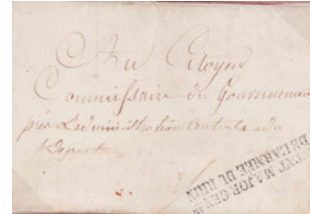 Au Citoyen
Commissaire du Gouvernement
près L'administration Centrale du
Départ
ETAT MAJOR GENAL
DE L'ARMEE DU RHIN